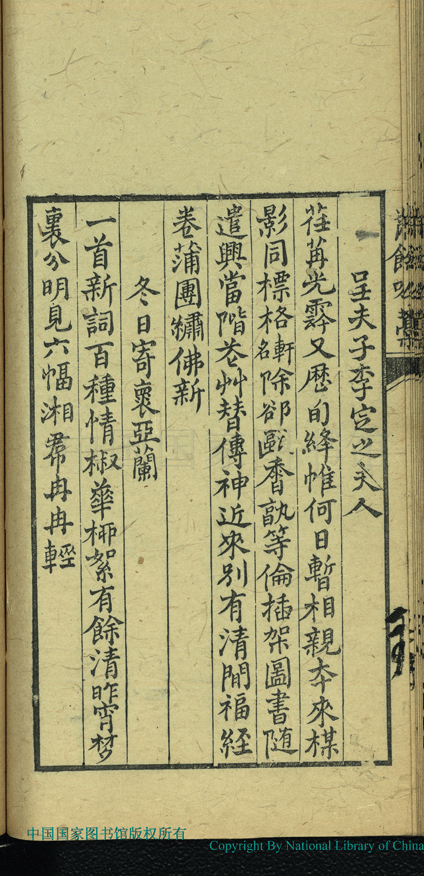 餘吟藁
呈夫子李定之夫人
荏苒光霠又歷旬絳帷何日暫相親本來楳
影同標格軒名除卻甌香孰等倫插架圖書隨
遣興當階花艸替傳神近來別有清閒福經
卷蒲團繡佛新
冬日寄褱亞蘭
一首新詞百種情椒華柳絮有餘清昨宵梦
裏分明見六幅湘帬冉冉輕
中国国家图书馆版权所有
Copyright By National Library of China